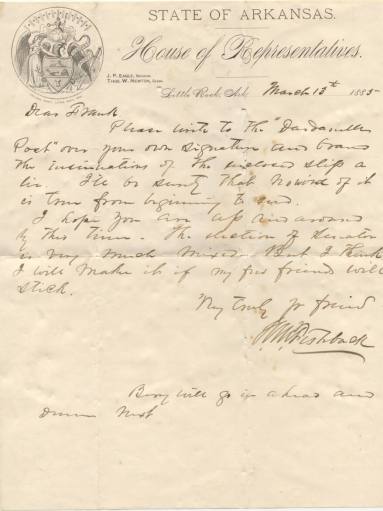 STATE OF ARKANSAS.
House of Representatives.
J. P. EAGLE, SPEAKER
THOS. W. NEWTON, CLERK
Little Rock, Ark. March 13th 1885
Dear Frank
Please write to the "Dardanelle
Post" over your own signature, and brand
the insinuations of the inclosed slip a
lie. I'll be surety that no word of it
is true from beginning to end.
I hope you are up and around
by this time. The election of Senator
is very much mixed. But I think
I will make it if my friend will
stick.
Very truly yr friend
W M Fishback
Berry will go in ahead and
next